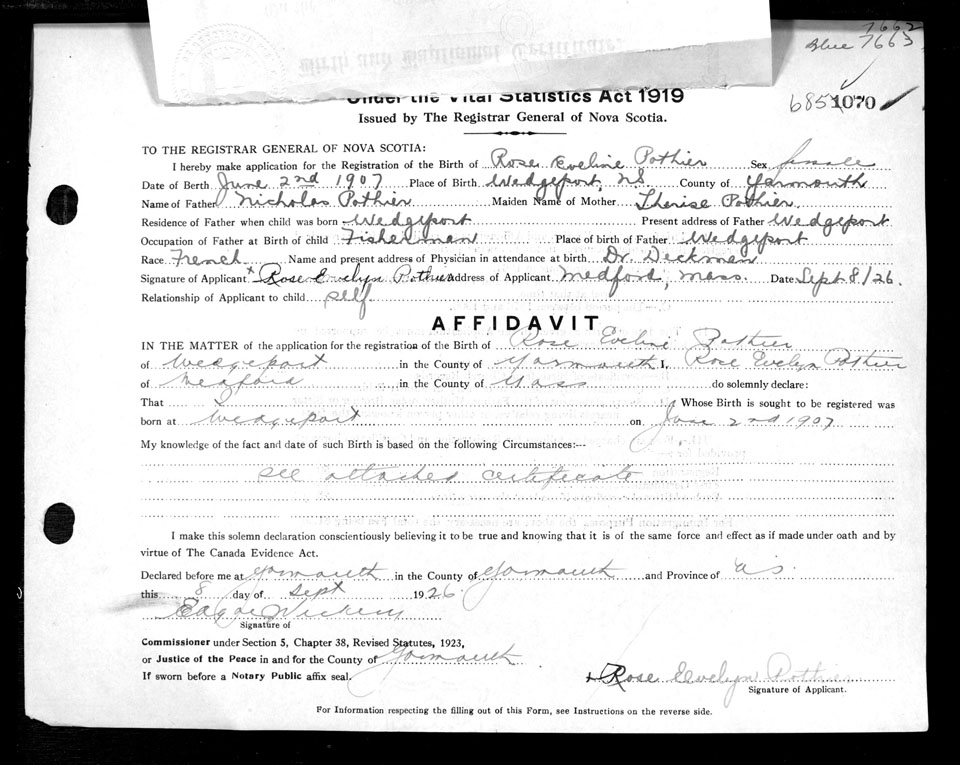 7662
Blue 7663
Birth and Baptismal Certificate
Under the Vital Statistics Act 1919
685 1070
Issued by The Registrar General of Nova Scotia.
TO THE REGISTRAR GENERAL OF NOVA SCOTIA:
I hereby make application for the Registration of the Birth of Rose Eveline Pothier Sex female
Date of Berth June 2nd 1907 Place of Birth Wedgeport, NS County of Yarmouth
Name of Father Nicholas Pothier Maiden Name of Mother Therise Pothier
Residence of Father when child was born Wedgeport Present address of Father Wedgeport
Occupation of Father at Birth of child Fisherman Place of birth of Father Wedgeport
Race French Name and present address of Physician in attendance at birth Dr. Deckman
Signature of Applicant x Rose Evelyn Pothier Address of Applicant Medford, Mass. Date Sept 8/26.
Relationship of Applicant to child self
AFFIDAVIT
IN THE MATTER of the application for the registration of the Birth of Rose Eveline Pothier
of Wedgeport in the County of Yarmouth I, Rose Evelyn Pothier
of Medford in the County of Mass do solemnly declare:
That I Whose Birth is sought to be registered was
born at Wedgeport on June 2nd 1907
My knowledge of the fact and date of such Birth is based on the following Circumstances:--
see attached certificate
I make this solemn declaration conscientiously believing it to be true and knowing that it is of the same force and effect as if made under oath and by
virtue of The Canada Evidence Act.
Declared before me at Yarmouth in the County of Yarmouth and Province of NS.
this 8 day of Sept 1926.
Signature of
Commissioner under Section 5, Chapter 38, Revised Statutes, 1923,
or Justice of the Peace in and for the County of Yarmouth
If sworn before a Notary Public affix seal.
x Rose Evelyn Pothier
Signature of Applicant.
For Information respecting the filling out of this Form, see Instructions on the reverse side.